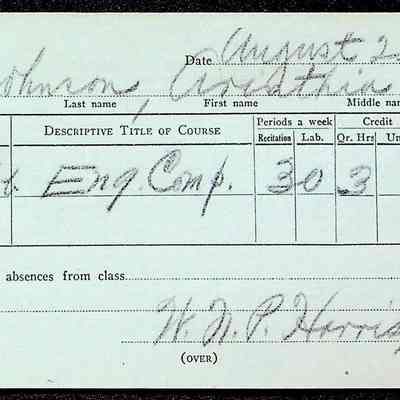 Date August 2
Johnson, Arinthia
Last name First name Middle na
DESCRIPTIVE TITLE OF COURSE Periods a week Credit
Recitation Lab. Qr. Hrs Un
Eng. Comp. 3 0 3
absences from class
W. N. P. Harris
(OVER)